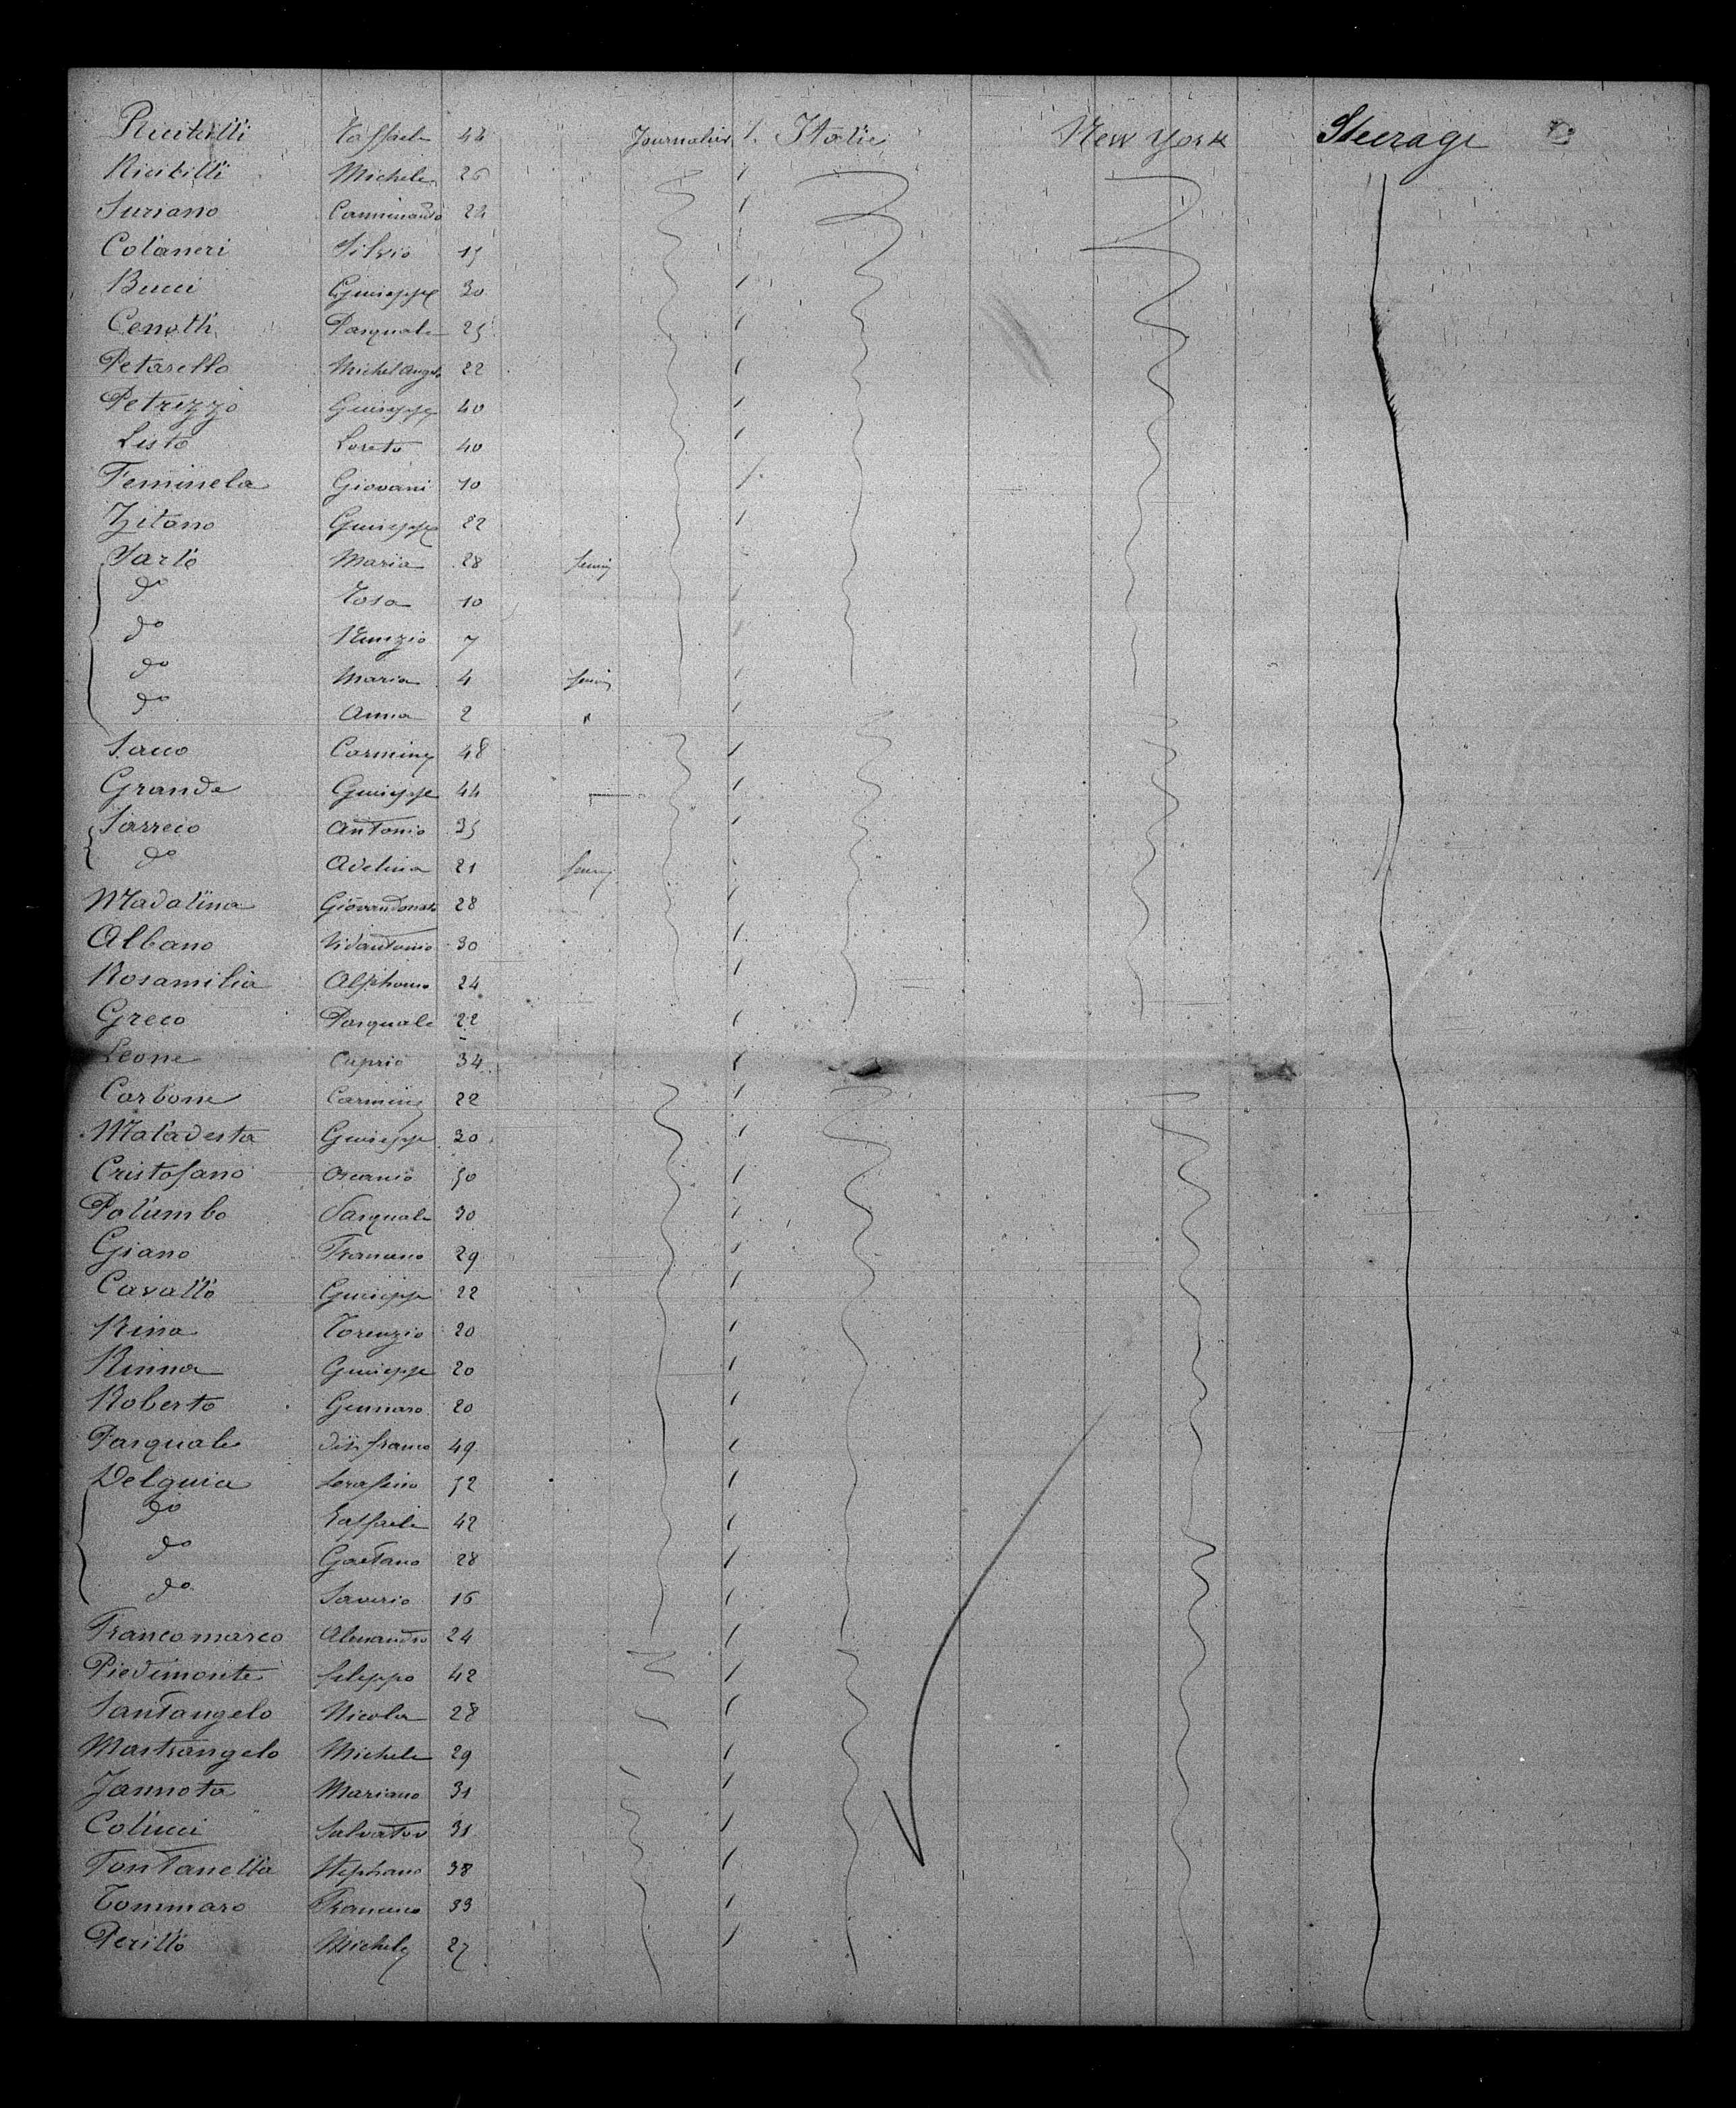 Ricitilli Raffaele 44 Journalier 1. Italie New York Steerage
Ricitilli Michele 26
Suriano 24
Colaneri Silvio 15
Bucci Giuseppe 30
Pasquale 25
Petarello Michel Angelo 22
Petrizzo Giuseppe 40
Listo Loreto 40
Feminela Giovani 10
Zitano Giuseppe 22
Sarlo Maria 28
do Rosa 10
do Nunzio 7
do Maria 4
do Anna 2 "
Sacco Carmine 48
Grande Giuseppe 44
Sarreio Antonio 35
do Adelina 21
Madalina Giovandonato 28
Albano Vidantonio 30
Rosamilia Alphonso 24
Greco Pasquale 22
Leone Caprio 34
Carbone Carmine 22
Maladesta Giuseppe 30
Cristofano Oscanio 50
Palumbo Pasquale 30
Giano Francesco 29
Cavallo Giuseppe 22
Rina Lorenzio 20
Rinna Giuseppe 20
Roberto Gennaro 20
Pasquale 49
Delguia Serafino 52
do Raffaele 42
do Gaetano 28
do Saverio 16
Francomarco Alessandro 24
Piedimonte Filippo 42
Santangelo Nicola 28
Mastrangelo Michele 29
Jannota Mariano 31
Colucci Salvator 31
Fontanella Stephano 38
Tommaso Francesco 33
Perillo Michele 27